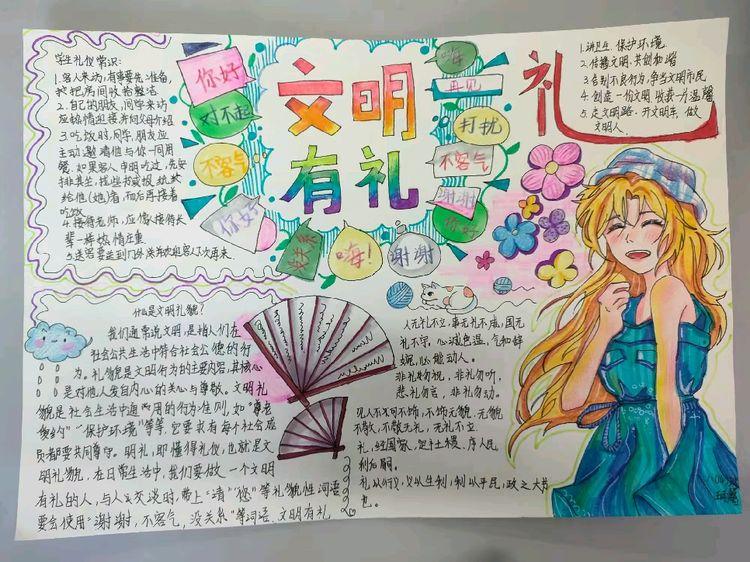 学生礼仪常识:
1.客人来访,有事要先准备,
把房间收拾整洁
2.自己的朋友,同学来访
应热情迎接并向父母介绍
3.吃饭时,同学,朋友应
主动邀请他与你一同用
餐,如果客人申明吃过,先安
排其坐,找些书或报
给他(她)看,而后再接着
吃饭
4.接待老师,应像接待长
辈一样热情庄重
你好
对不起
不客气
你好
没关系
嗨!
谢谢
文明
有礼
嗨
再见
打扰
不客气
谢谢
你好
礼
1.讲卫生,保护环境
2.传播文明,共创和谐
3.告别不良行为,争当文明市民
4.创造一份文明,收获一片温馨
5.走文明路,开文明车,做
文明人.
什么是文明礼貌?
我们通常说文明,是指人们在
社会公共生活中符合社会公德的行
为。礼貌是文明行为的主要内容,其核心
是对他人发自内心的关心与尊敬。文明礼
貌是社会生活中通用的行为准则,如“尊老
“保护环境”等等,它要求有每个社会成
员都要共同尊守。明礼,即懂得礼仪,也就是文
明礼貌,在日常生活中,我们要做一个文明
有礼的人,与人交谈时,带上“请”“您”等礼貌性词语
要会使用“谢谢,不客气,没关系”等词语.文明有礼
人无礼不立,事无礼不成,国无
礼不宁,心诚色温,气和辞
婉,必能动人。
非礼勿视,非礼勿听,
非礼勿言,非礼勿动。
见人不可不饰,不饰无貌,无貌
不敬,不敬无礼,无礼不立
礼,经国家,定社稷,序人民,
利后嗣。
礼以行义,义以生利,利以平民,政之大节
也。